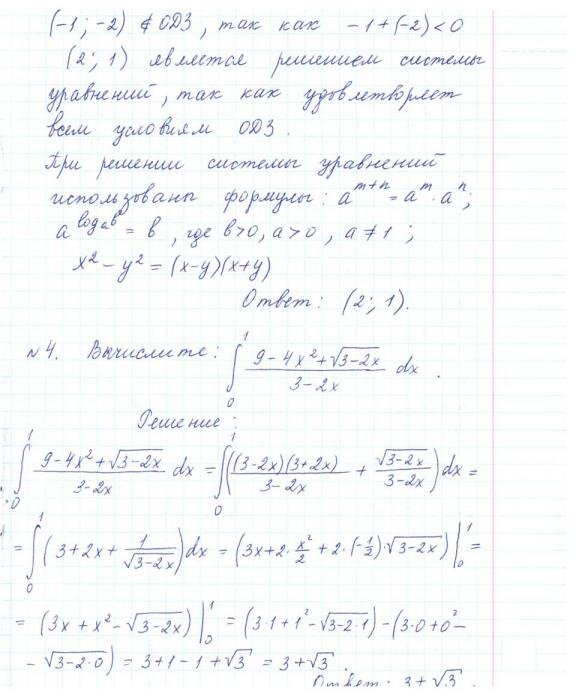 (-1; -2) ∉ ОДЗ, так как -1+(-2)<0
(2; 1) является решением системы
уравнений, так как удовлетворяет
всем условиям ОДЗ.
При решении системы уравнений
использованы формулы: a^{m+n} = a^m · a^n;
a^{log_a b} = b, где b>0, a>0, a≠1;
x² - y² = (x-y)(x+y)
Ответ: (2; 1).
№4. Вычислите: ∫₀¹ (9-4x²+√(3-2x))/(3-2x) dx.
Решение:
∫₀¹ (9-4x²+√(3-2x))/(3-2x) dx = ∫₀¹ (((3-2x)(3+2x))/(3-2x) + √(3-2x)/(3-2x)) dx =
= ∫₀¹ (3+2x+1/√(3-2x)) dx = (3x+2·x²/2+2·(-1/2)·√(3-2x))|₀¹ =
= (3x+x²-√(3-2x))|₀¹ = (3·1+1²-√(3-2·1))-(3·0+0²-
-√(3-2·0)) = 3+1-1+√3 = 3+√3.
Ответ: 3+√3.